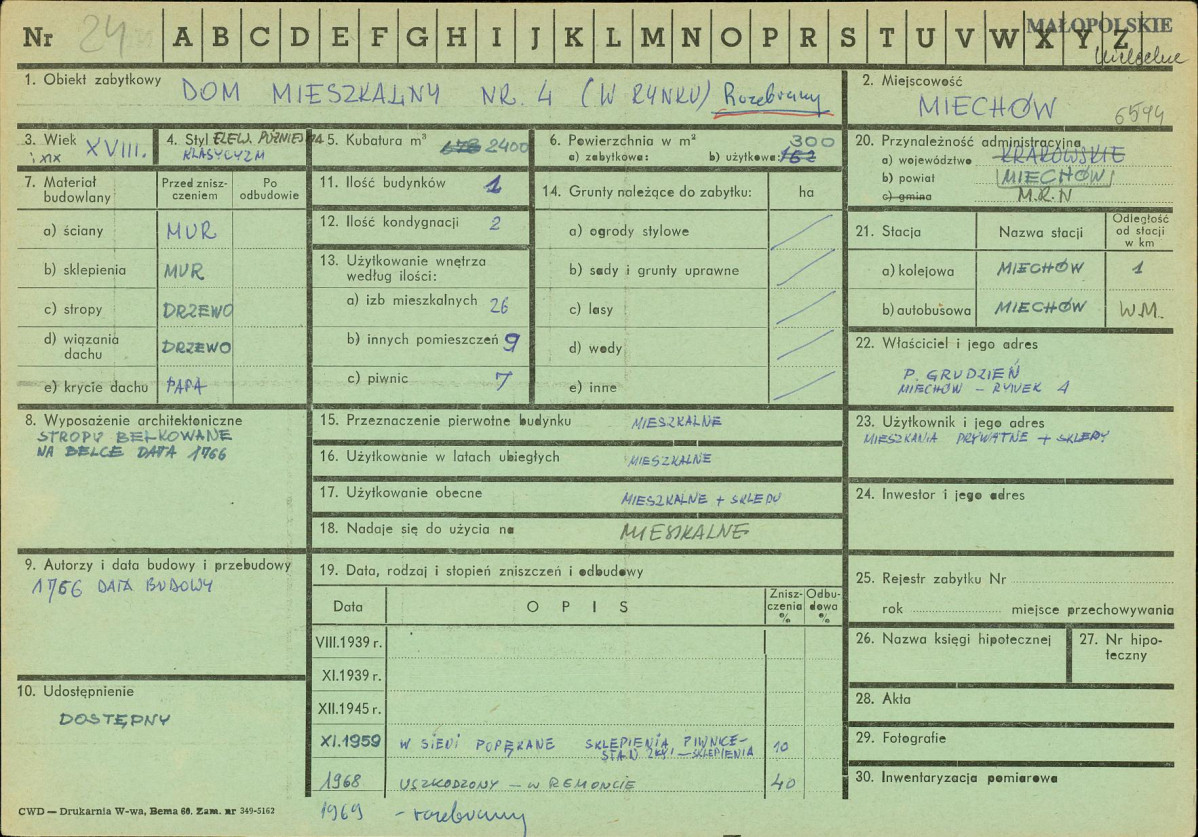 Nr 24 A B C D E F G H I J K L M N O P R S T U V W X Y Z MAŁOPOLSKIE
1. Obiekt zabytkowy DOM MIESZKALNY NR. 4 (W RYNKU) Rozebrany
2. Miejscowość
MIECHÓW 6594
3. Wiek XVIII.
i XIX
4. Styl ELEW. PÓŹNIEJSZA
KLASYCYZM
5. Kubatura m³ 678 2400
6. Powierzchnia w m² 300
a) zabytkowa: b) użytkowa: 162
20. Przynależność administracyjna
a) województwo KRAKOWSKIE
b) powiat MIECHÓW
c) gmina M.R.N
7. Materiał budowlany
Przed znisz-
czeniem
Po
odbudowie
a) ściany MUR
b) sklepienia MUR
c) stropy DRZEWO
d) wiązania
dachu DRZEWO
e) krycie dachu PAPA
11. Ilość budynków 1
12. Ilość kondygnacji 2
13. Użytkowanie wnętrza
według ilości:
a) izb mieszkalnych 26
b) innych pomieszczeń 9
c) piwnic 7
14. Grunty należące do zabytku: ha
a) ogrody stylowe
b) sady i grunty uprawne
c) lasy
d) wody
e) inne
21. Stacja Nazwa stacji Odległość
od stacji
w km
a) kolejowa MIECHÓW 1
b) autobusowa MIECHÓW W.M.
22. Właściciel i jego adres
P. GRUDZIEŃ
MIECHÓW – RYNEK 4
8. Wyposażenie architektoniczne
STROPY BELKOWANE
NA BELCE DATA 1766
15. Przeznaczenie pierwotne budynku MIESZKALNE
16. Użytkowanie w latach ubiegłych MIESZKALNE
17. Użytkowanie obecne MIESZKALNE + SKLEPY
18. Nadaje się do użycia na MIESZKALNE
23. Użytkownik i jego adres
MIESZKANIA PRYWATNE + SKLEPY
24. Inwestor i jego adres
9. Autorzy i data budowy i przebudowy
1766 DATA BUDOWY
10. Udostępnienie
DOSTĘPNY
19. Data, rodzaj i stopień zniszczeń i odbudowy
Data OPIS Znisz-
czenia
% Odbu-
dowa
%
VIII.1939 r.
XI.1939 r.
XII.1945 r.
XI.1959 W SIENI POPĘKANE SKLEPIENIA PIWNICE-
STAN ZŁY – SKLEPIENIA 10
1968 USZKODZONY – W REMONCIE 40
1969 – rozebrany
25. Rejestr zabytku Nr
rok miejsce przechowywania
26. Nazwa księgi hipotecznej
27. Nr hipo-
teczny
28. Akta
29. Fotografie
30. Inwentaryzacja pomiarowa
CWD — Drukarnia W-wa, Bema 60. Zam. nr 349-5162